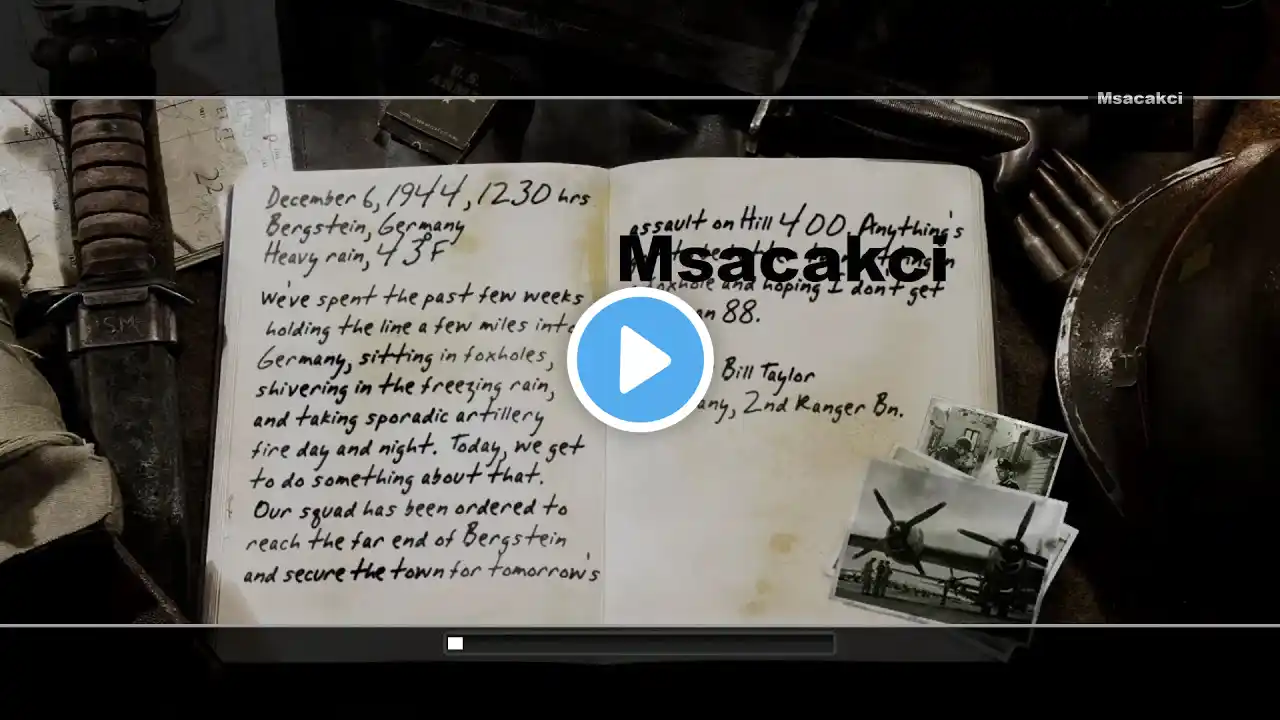 U.S.
ARMY
Msacakci
22
December 6, 1944, 1230 hrs
Bergstein, Germany
Heavy rain, 43°F
We've spent the past few weeks
holding the line a few miles into
Germany, sitting in foxholes,
shivering in the freezing rain,
and taking sporadic artillery
fire day and night. Today, we get
to do something about that.
Our squad has been ordered to
reach the far end of Bergstein
and secure the town for tomorrow's
assault on Hill 400. Anything's
Msacakci
foxhole and hoping I don't get
88.
Bill Taylor
2nd Ranger Bn.
S.M.